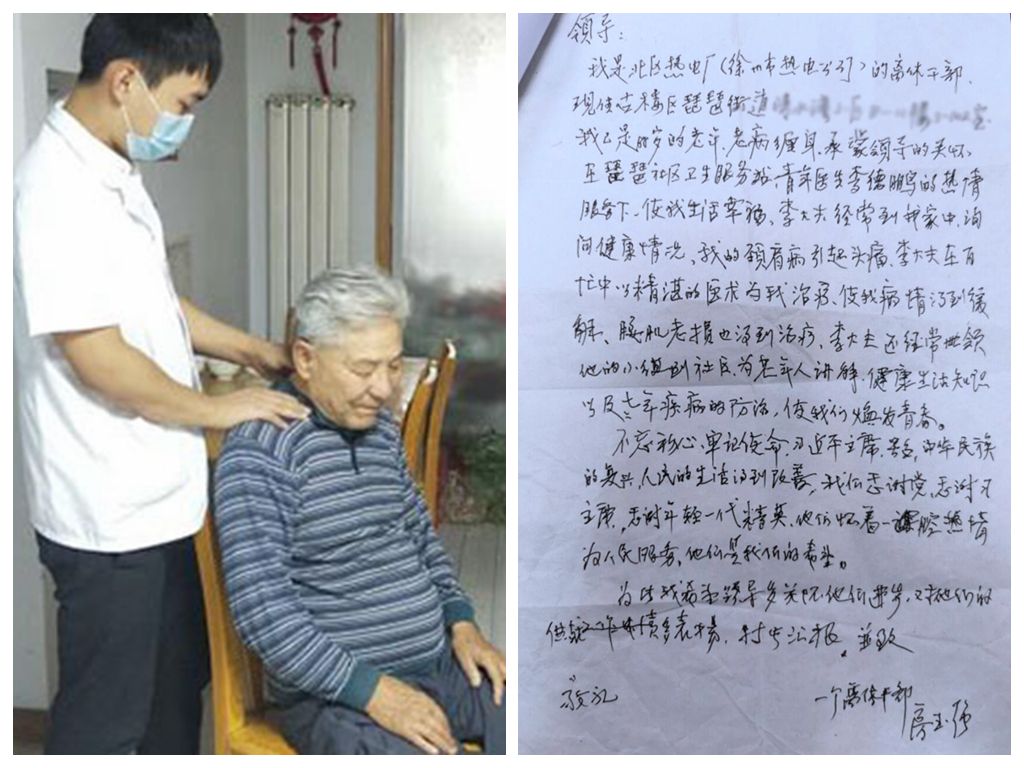 领导：
我是北区热电厂(徐州市热电公司)的离休干部，
现住鼓楼区琵琶街道
我已是 岁的老年、老病缠身，承蒙领导的关怀，
在琵琶社区卫生服务站，青年医生李德鹏的热情
服务下，使我生活幸福，李大夫经常到我家中，询
问健康情况、我的颈肩病引起头痛，李大夫在百
忙中以精湛的医术为我治疗、使我病情得到缓
解、腰肌老损也得到治疗，李大夫还经常带领
他的小组到社区为老年人讲解，健康生活知识
以及 年疾病的防治，使我们焕发青春。
不忘初心、牢记使命，习近平主席，号召，中华民族
的复兴，人民的生活得到改善，我们感谢党，感谢习
主席，感谢年轻一代精英，他们怀着一 腔热情
为人民服务，他们是我们的希望。
为此我希望领导多关怀他们进步，又对他们的
绩多表扬， 汇报。并致
敬礼
一个离休干部
高玉强